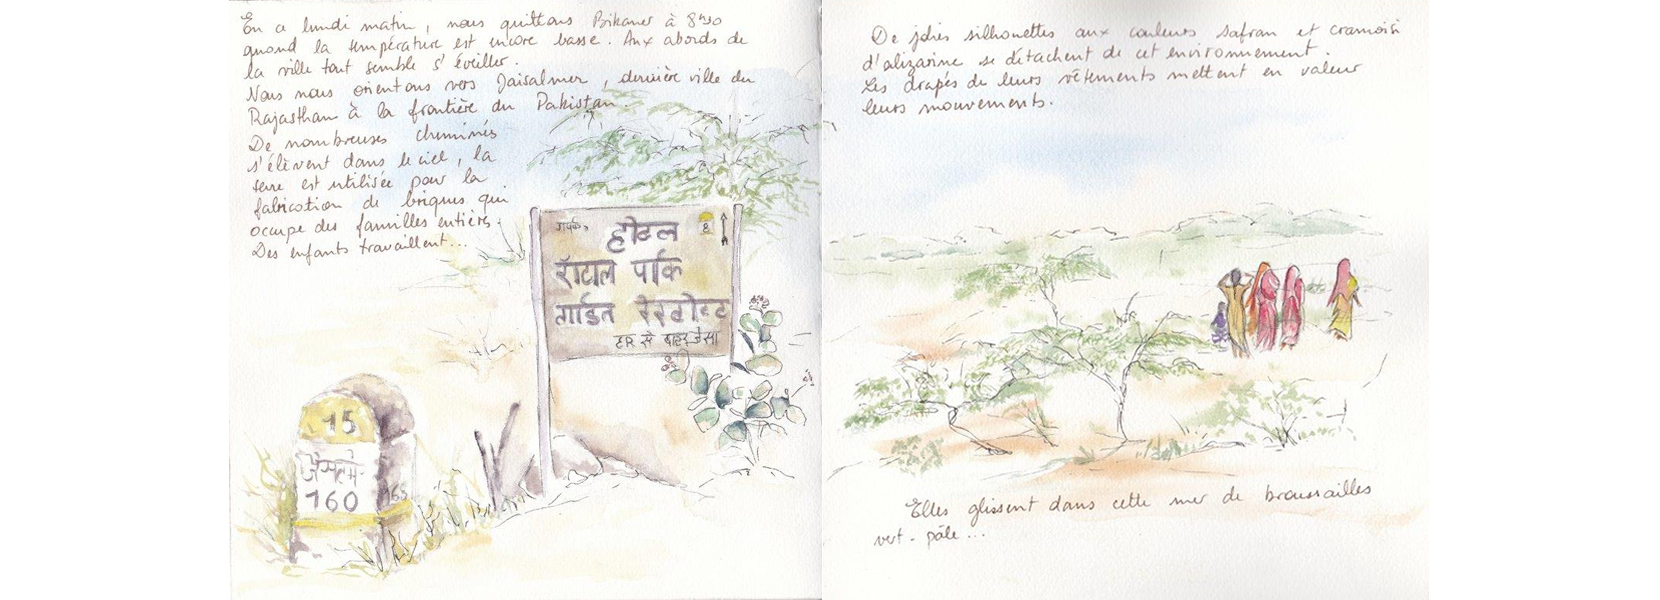 En ce lundi matin, nous quittons Bikaner à 8h30
quand la température est encore basse. Aux abords de
la ville tout semble s'éveiller.
Nous nous orientons vers Jaisalmer, dernière ville du
Rajasthan à la frontière du Pakistan.
De nombreuses cheminés
s'élèvent dans le ciel, la
terre est utilisée pour la
fabrication de briques qui
occupe des familles entières.
Des enfants travaillent...
होटल
8
रॉटाल पार्क
गार्डन रेस्टोन्ट
15
160
165
De jolies silhouettes aux couleurs safran et cramoisi
d'alizarine se détachent de cet environnement.
Les drapés de leurs vêtements mettent en valeur
leurs mouvements.
Elles glissent dans cette mer de broussailles
vert-pâle...